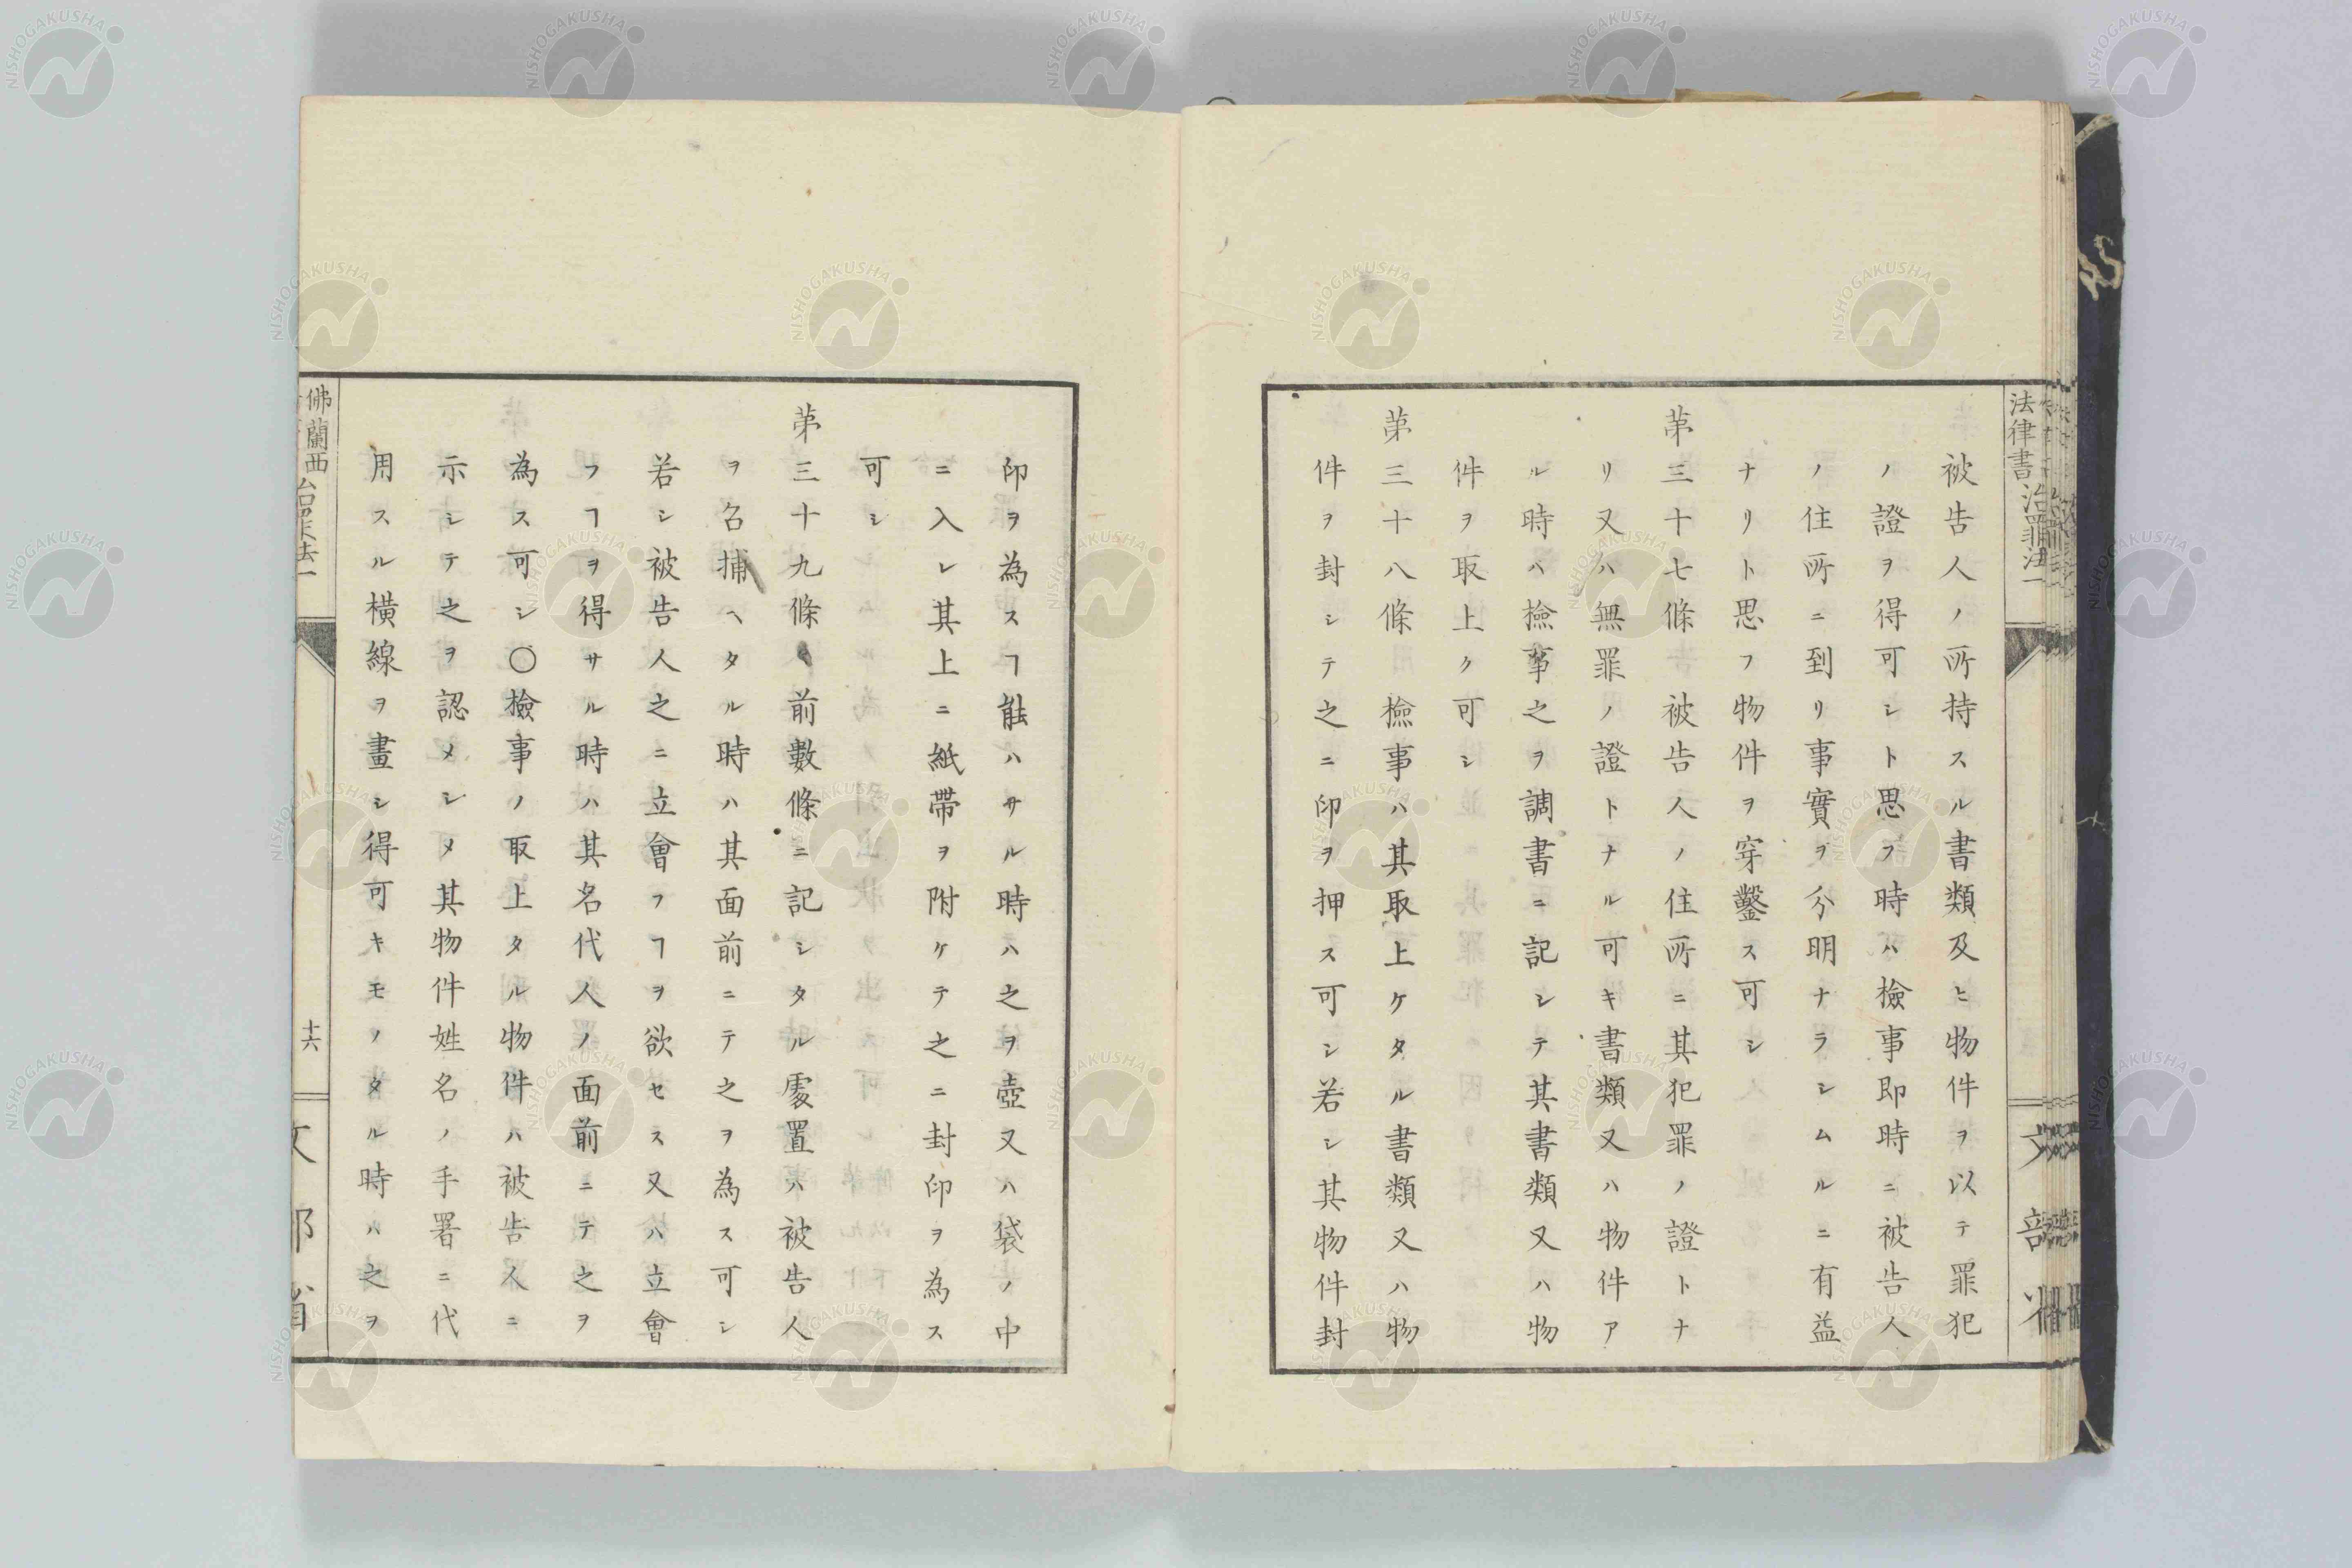 法律書 治罪法一
文部省
被告人ノ所持スル書類及ヒ物件ヲ以テ罪犯
ノ證ヲ得可シト思フ時ハ檢事即時ニ被告人
ノ住所ニ到リ事實ヲ分明ナラシムルニ有益
ナリト思フ物件ヲ穿鑿ス可シ
苐三十七條 被告人ノ住所ニ其犯罪ノ證トナ
リ又ハ無罪ノ證トナル可キ書類又ハ物件ア
ル時ハ撿事之ヲ調書ニ記シテ其書類又ハ物
件ヲ取上ク可シ
苐三十八條 撿事ハ其取上ケタル書類又ハ物
件ヲ封シテ之ニ印ヲ押ス可シ若シ其物件封
印ヲ為スヿ能ハサル時ハ之ヲ壺又ハ袋ノ中
ニ入レ其上ニ紙帶ヲ附ケテ之ニ封印ヲ為ス
可シ
苐三十九條 前數條ニ記シタル處置ハ被告人
ヲ名捕ヘタル時ハ其面前ニテ之ヲ為ス可シ
若シ被告人之ニ立會フヿヲ欲セス又ハ立會
フヿヲ得サル時ハ其名代人ノ面前ニテ之ヲ
為ス可シ〇檢事ノ取上タル物件ハ被告人ニ
示シテ之ヲ認メシメ其物件姓名ノ手署ニ代
用スル橫線ヲ畫シ得可キモノタル時ハ之ヲ
佛蘭西
十六
文部省
NISHOGAKUSHA